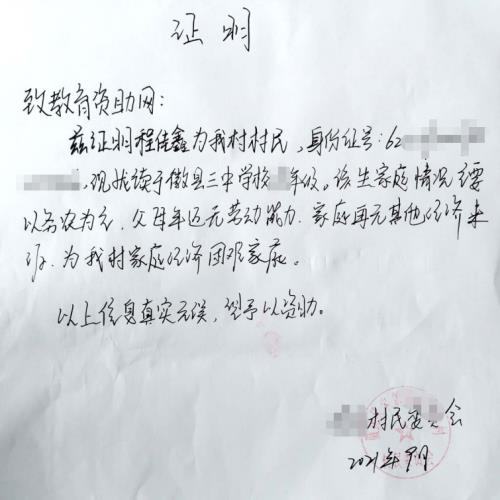 证明
致教育资助网:
兹证明程佳鑫为我村村民,身份证号:62
,现就读于徽县三中学校 年级。该生家庭情况主要
以务农为主,父母年迈无劳动能力,家庭再无其他经济来
源,为我村家庭经济困难家庭。
以上信息真实无误,望予以资助。
村民委员会
2021年9月